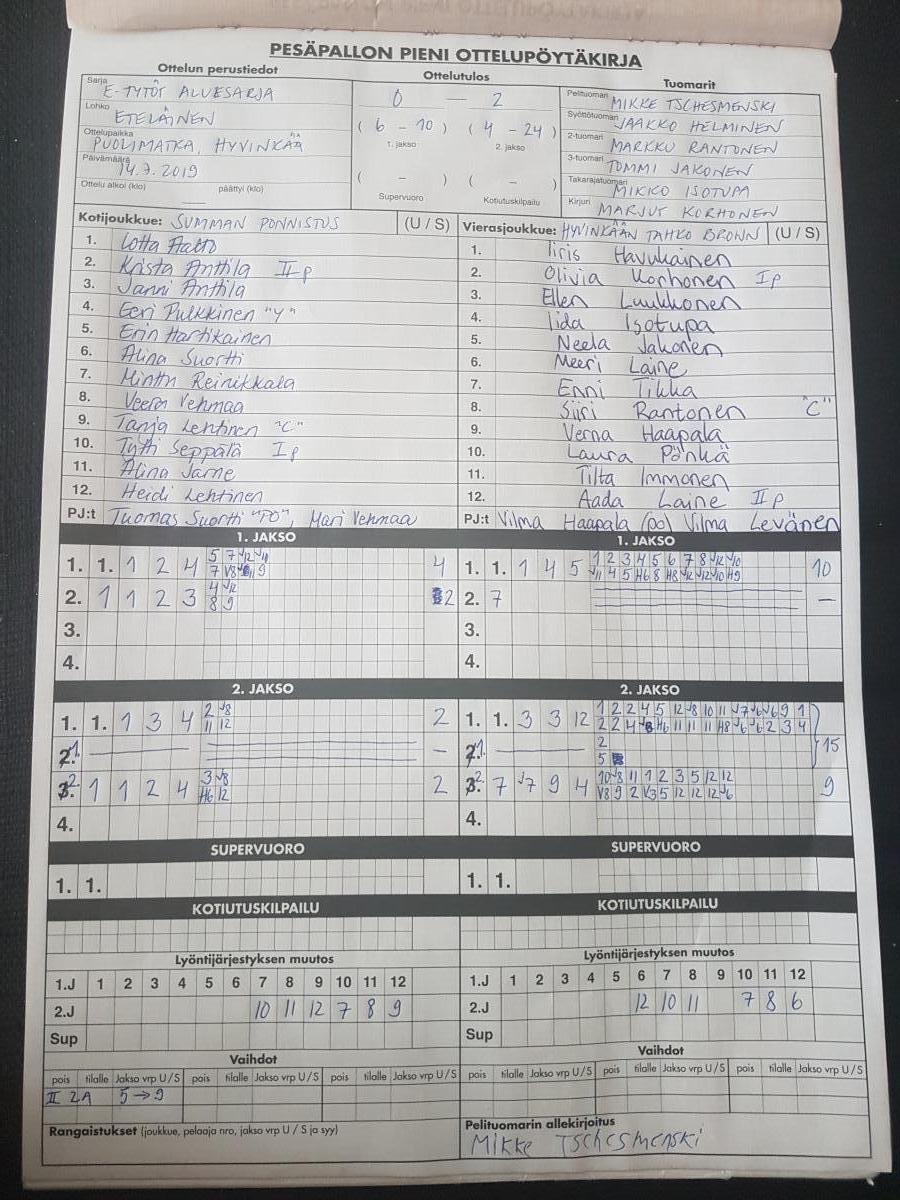 PESÄPALLON PIENI OTTELUPÖYTÄKIRJA
Ottelun perustiedot Ottelutulos Tuomarit
Sarja E-TYTÖT ALUESARJA
Lohko ETELÄINEN
Ottelupaikka PUOLIMATKA, HYVINKÄÄ
Päivämäärä 14.7.2019
Ottelu alkoi (klo) päättyi (klo)
0 — 2
( 6 - 10 ) ( 4 - 24 )
1. jakso 2. jakso
( - ) ( - )
Supervuoro Kotiutuskilpailu
Pelituomari MIKKE TSCHESMENSKI
Syöttötuomari JAAKKO HELMINEN
2-tuomari MARKKU RANTONEN
3-tuomari TOMMI JAKONEN
Takarajatuomari MIKKO ISOTUPA
Kirjuri MARJUT KORHONEN
Kotijoukkue: SUMMAN PONNISTUS (U / S)
1. Lotta Aalto
2. Krista Anttila II p
3. Janni Anttila
4. Eeri Pulkkinen "Y"
5. Erin Hartikainen
6. Alina Suortti
7. Minttu Reinikkala
8. Veera Vehmaa
9. Tanja Lehtinen "C"
10. Tytti Seppälä I p
11. Alina Järne
12. Heidi Lehtinen
PJ:t Tuomas Suortti "PO", Mari Vehmaa
Vierasjoukkue: HYVINKÄÄN TAHKO BROWN (U / S)
1. Iiris Havukainen
2. Olivia Korhonen I p
3. Ellen Luukkonen
4. Iida Isotupa
5. Neela Jakonen
6. Meeri Laine
7. Enni Tikka
8. Siiri Rantonen "C"
9. Verna Haapala
10. Laura Pönkä
11. Tilta Immonen
12. Aada Laine II p
PJ:t Vilma Haapala (po) Vilma Levänen
1. JAKSO
1. 1. 1 2 4 5 7 V12 V10 4
2. 1 1 2 3 4 V12 2
8 9
3.
4.
1. JAKSO
1. 1. 1 4 5 1 2 3 4 5 6 7 8 V12 V10 10
V11 4 5 H6 8 H8 V12 V12 V10 H9
2. 7 —
3.
4.
2. JAKSO
1. 1. 1 3 4 2 V8 2
11 12
2. —
3. 1 1 2 4 3 V8 2
H6 12
4.
2. JAKSO
1. 1. 3 3 12 1 2 2 4 5 12 V8 10 11 V7 V6 V6 9 1
2 15
5
3. 7 V7 9 4 10 V8 11 1 2 3 5 12 12 9
V8 9 2 V3 5 12 12 12 V6
4.
SUPERVUORO
1. 1.
SUPERVUORO
1. 1.
KOTIUTUSKILPAILU
KOTIUTUSKILPAILU
Lyöntijärjestyksen muutos
1.J 1 2 3 4 5 6 7 8 9 10 11 12
2.J 10 11 12 7 8 9
Sup
Lyöntijärjestyksen muutos
1.J 1 2 3 4 5 6 7 8 9 10 11 12
2.J 12 10 11 7 8 6
Sup
Vaihdot
pois tilalle Jakso vrp U / S pois tilalle Jakso vrp U / S pois tilalle Jakso vrp U / S
II 2A 5→9
Vaihdot
pois tilalle Jakso vrp U / S pois tilalle Jakso vrp U / S pois tilalle Jakso vrp U / S
Rangaistukset (joukkue, pelaaja nro, jakso vrp U / S ja syy)
Pelituomarin allekirjoitus
Mikke Tschesmenski